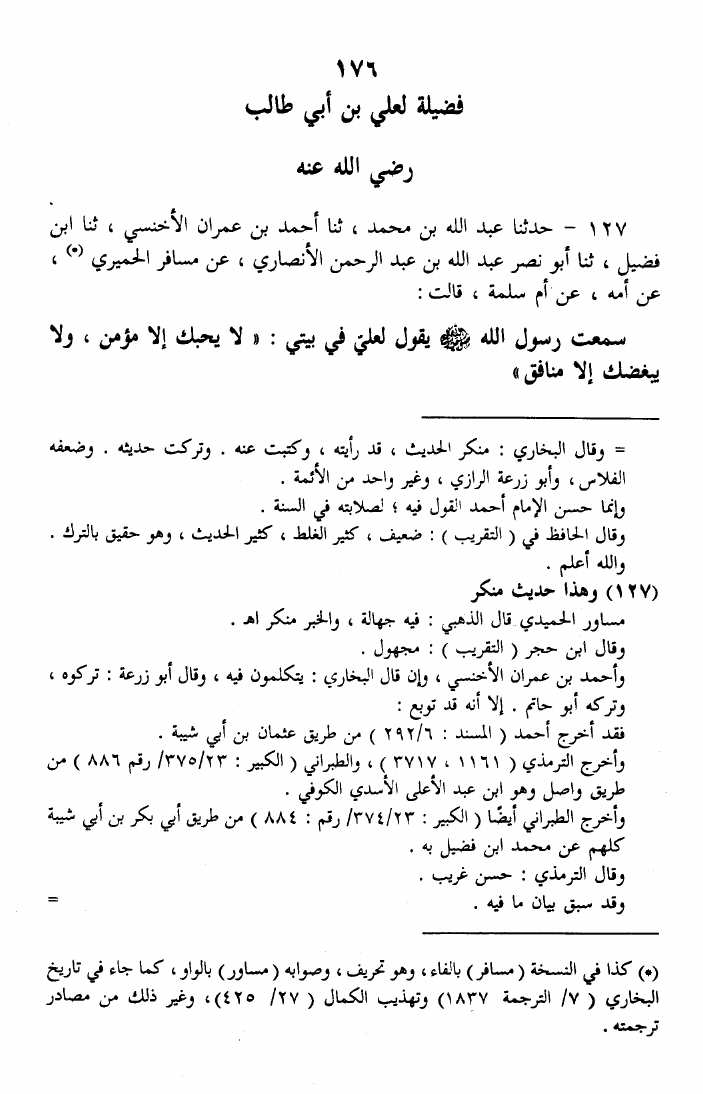 ١٧٦
فضيلة لعلي بن أبي طالب
رضي الله عنه
١٢٧ – حدثنا عبد الله بن محمد ، ثنا أحمد بن عمران الأخنسي ، ثنا ابن
فضيل ، ثنا أبو نصر عبد الله بن عبد الرحمن الأنصاري ، عن مسافر الحميري (*) ،
عن أمه ، عن أم سلمة ، قالت :
سمعت رسول الله ﷺ يقول لعليّ في بيتي : « لا يحبك إلا مؤمن ، ولا
يبغضك إلا منافق »
= وقال البخاري : منكر الحديث ، قد رأيته ، وكتبت عنه . وتركت حديثه . وضعفه
الفلاس ، وأبو زرعة الرازي ، وغير واحد من الأئمة .
وإنما حسن الإمام أحمد القول فيه ؛ لصلابته في السنة .
وقال الحافظ في ( التقريب ) : ضعيف ، كثير الغلط ، كثير الحديث ، وهو حقيق بالترك .
والله أعلم .
(١٢٧) وهذا حديث منكر
مساور الحميدي قال الذهبي : فيه جهالة ، والخبر منكر اهـ .
وقال ابن حجر ( التقريب ) : مجهول .
وأحمد بن عمران الأخنسي ، وإن قال البخاري : يتكلمون فيه ، وقال أبو زرعة : تركوه ،
وتركه أبو حاتم . إلا أنه قد توبع :
فقد أخرج أحمد ( المسند : ٢٩٢/٦ ) من طريق عثمان بن أبي شيبة .
وأخرج الترمذي ( ١١٦١ ، ٣٧١٧ ) ، والطبراني ( الكبير : ٣٧٥/٢٣/ رقم ٨٨٦ ) من
طريق واصل وهو ابن عبد الأعلى الأسدي الكوفي .
وأخرج الطبراني أيضًا ( الكبير : ٣٧٤/٢٣/ رقم : ٨٨٤ ) من طريق أبي بكر بن أبي شيبة
كلهم عن محمد ابن فضيل به .
وقال الترمذي : حسن غريب .
وقد سبق بيان ما فيه . =
(*) كذا في النسخة (مسافر) بالفاء، وهو تحريف ، وصوابه (مساور) بالواو ، كما جاء في تاريخ
البخاري ( ٧/ الترجمة ١٨٣٧) وتهذيب الكمال ( ٢٧/ ٤٢٥)، وغير ذلك من مصادر
ترجمته .